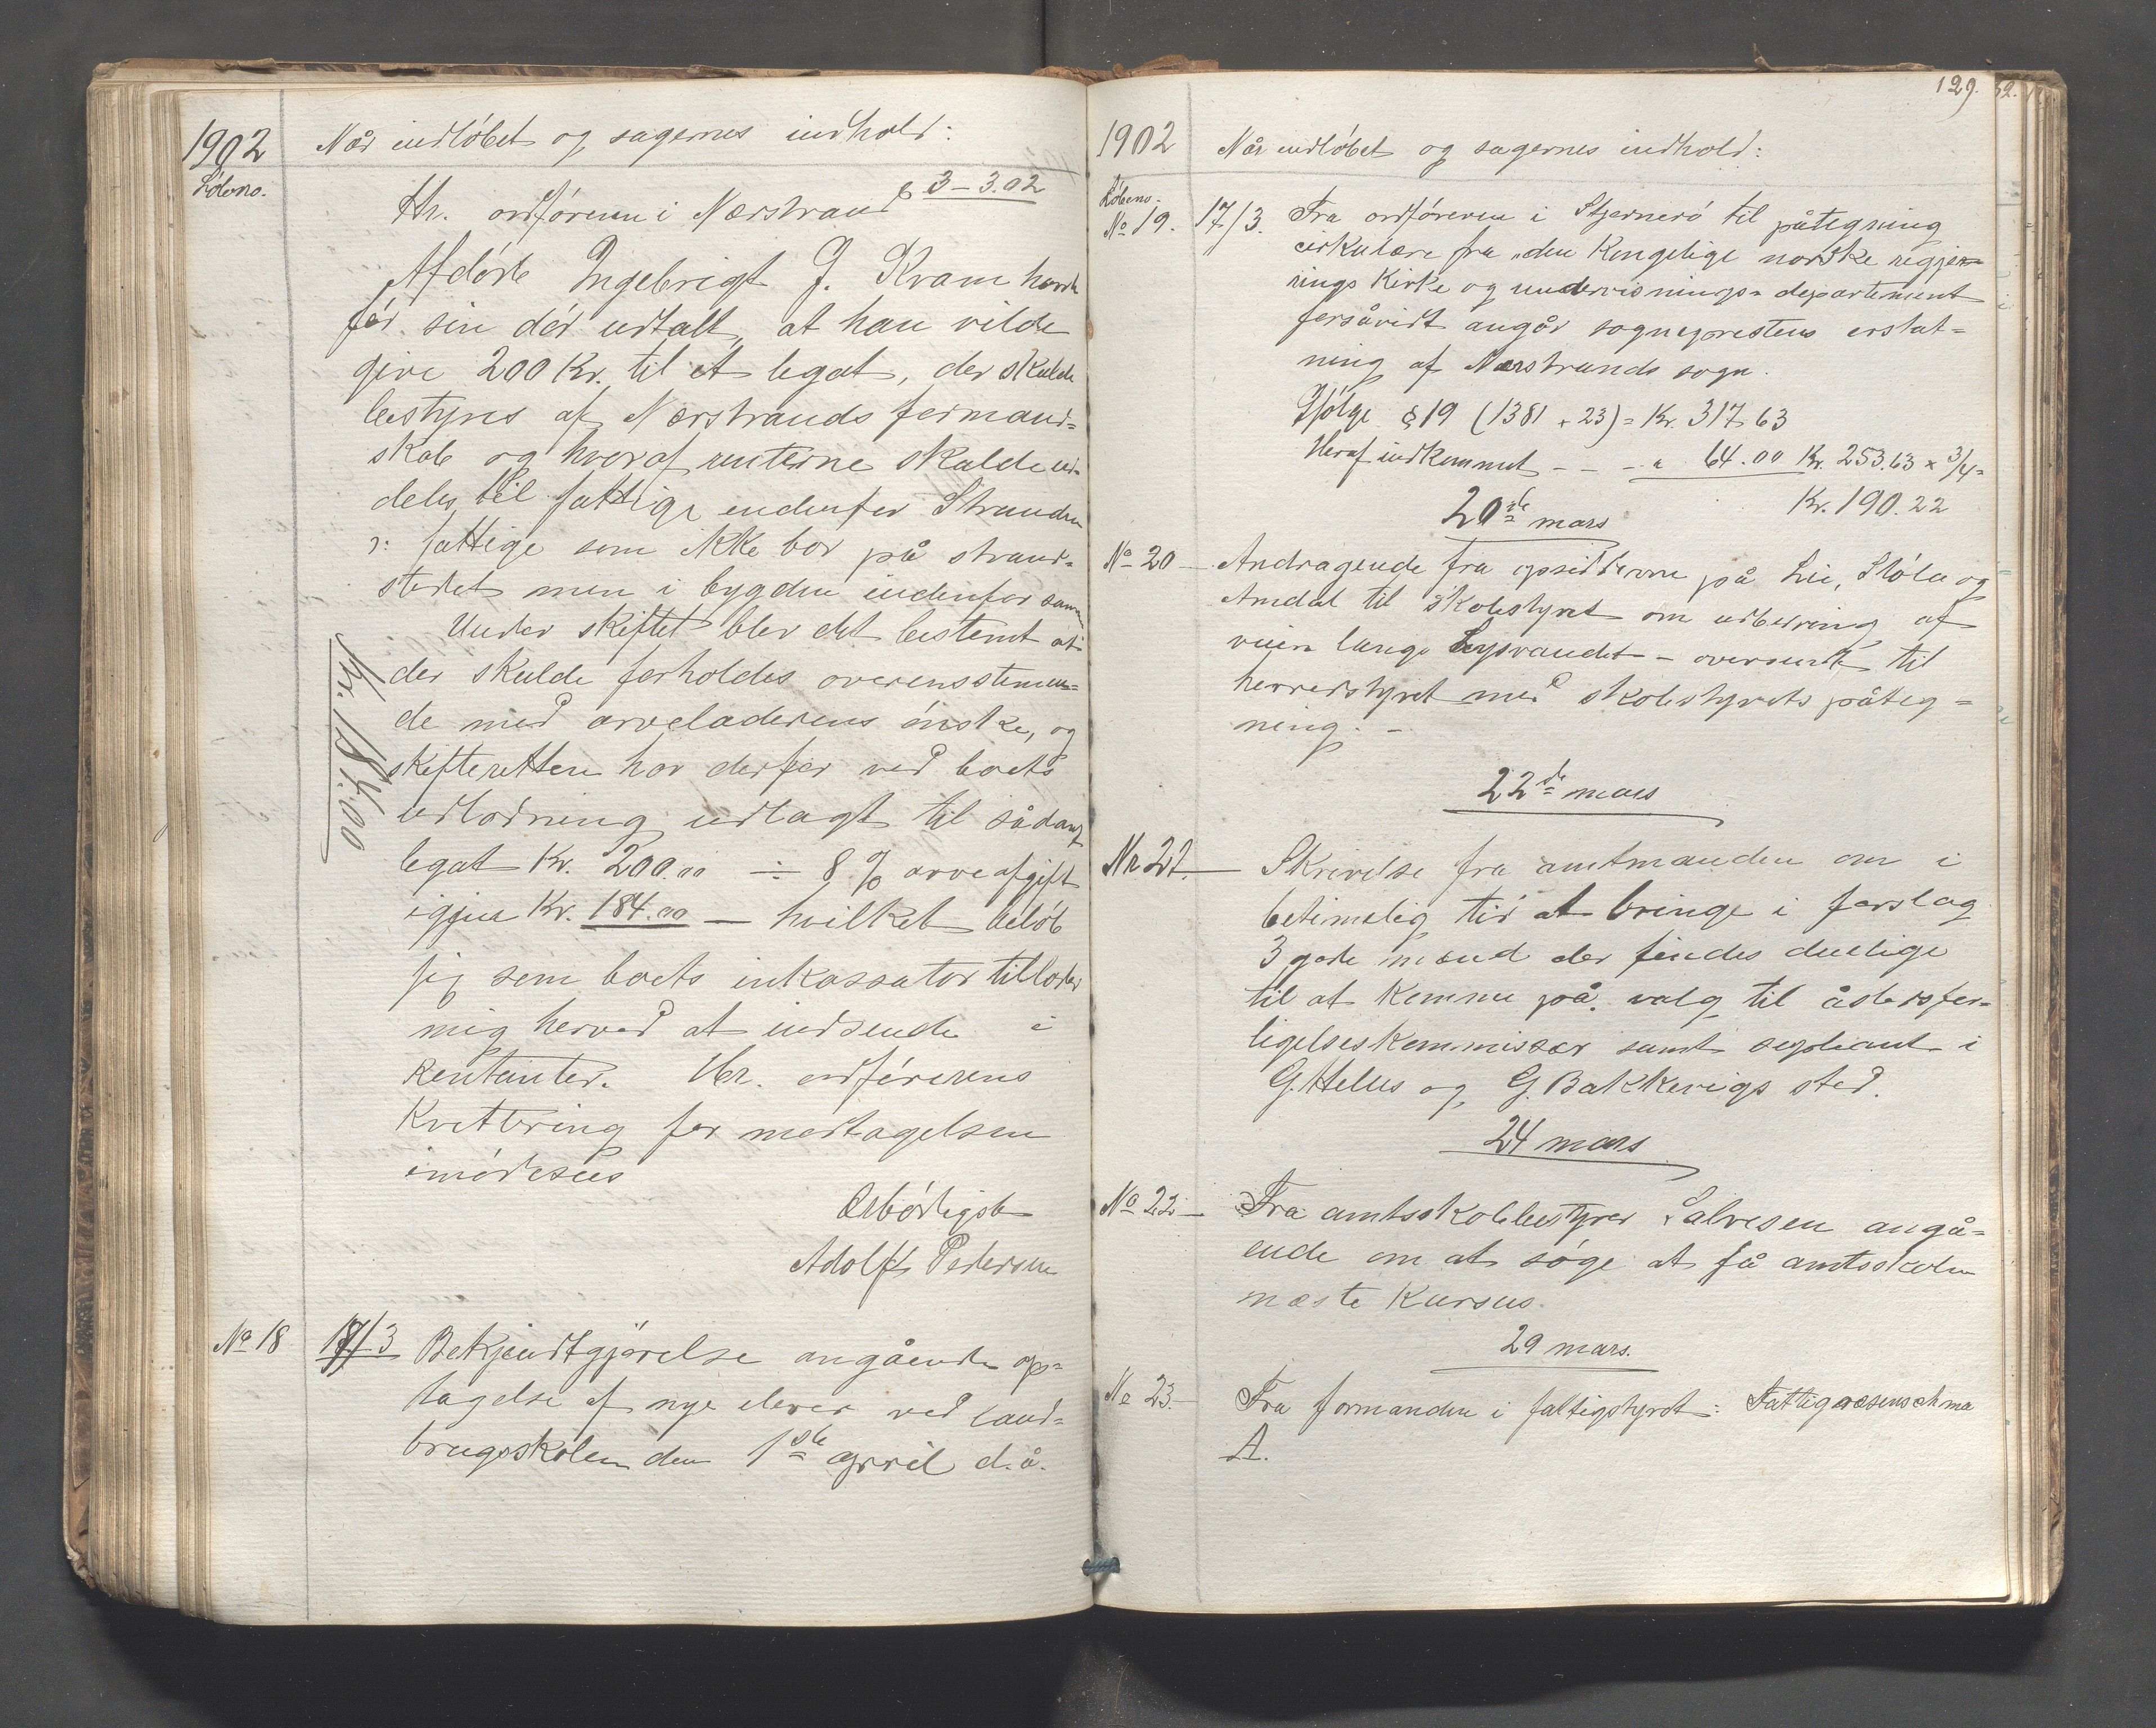 1902
Når indløbet og sagernes indhold:
Løbeno.
Hr. ordføreren i Nærstrand 3-3.02
Afdøde Ingebrigt J. Kvam havde
før sin død udtalt, at han vilde
give 200 Kr. til et legat, der skulde
bestyres af Nærstrands formand=
skab og hvoraf renterne skulde ud=
deles til fattige indenfor Stranden
ɔ: fattige som ikke bor på strand=
stedet men i bygden indenfor samme
Under skiftet blev det bestemt at
der skulde forholdes overensstemmen=
de med arveladerens ønske, og
skifteretten har derfor ved boets
udlodning udlagt til sådant
legat Kr. 200.00 ÷ 8 % arveafgift
igjen Kr. 184.00 — hvilket beløb
jeg som boets inkassator tillader
mig herved at indsende i
kontanter. Hr. ordførerens
Kvittering for modtagelsen
imødesees
Ærbødigst
Adolf Pedersen
Kr. 184.00
No 18 17/3 Bekjendtgjørelse angående op=
tagelse af nye elever ved land=
brugsskolen den 1ste april d.å.
129.
1902
Når indløbet og sagernes indhold:
Løbeno.
No 19. 17/3. Fra ordføreren i Stjernerø til påtegning
cirkulære fra "den Kongelige norske regjer=
rings Kirke og undervisnings= departement
forsåvidt angår sogneprestens erstat=
ning af Nærstrands sogn.
Ifølge § 19 (1381 + 23) = Kr. 317,63
Heraf indkommet - - - " 64.00 Kr. 253.63 x 3/4=
Kr. 190.22
20de mars
No 20 — Andragende fra opsidderne på Lie, Støle og
Amdal til skolestyret om udbedring af
veien langs Lysvandet — oversendt til
herredstyret med skolestyrets påteg=
ning. -
22de mars
Nr 21. — Skrivelse fra amtmanden om i
betimelig tid at bringe i forslag
3 gode mænd der findes duelige
til at komme på valg til åstedsfor=
ligelseskommissær samt supleant i
G. Helles og G. Bakkevigs sted.
24 mars
No 22 — Fra amtsskolebestyrer Salvesen angå=
ende om at søge at få amtsskolen
næste Kursus.
29 mars.
No 23. — Fra formanden i fattigstyret: Fattigvæsenschema
A.